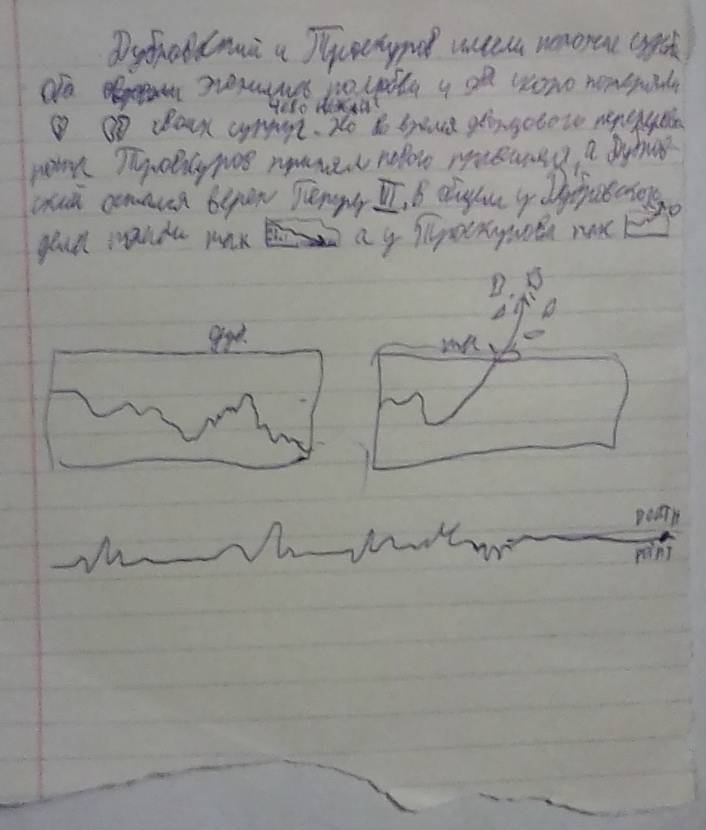 Дубровский и Троекуров имели похожие судьбы
Оба женились по любви и скоро потеряли
своих супруг. Но во время дворцового переворо
Троекуров принял нового правителя, а Дубров-
ский остался верен Петру III, в общем у Дубровского
дела пошли так а у Троекурова так
Дуб.
тр
DEATH